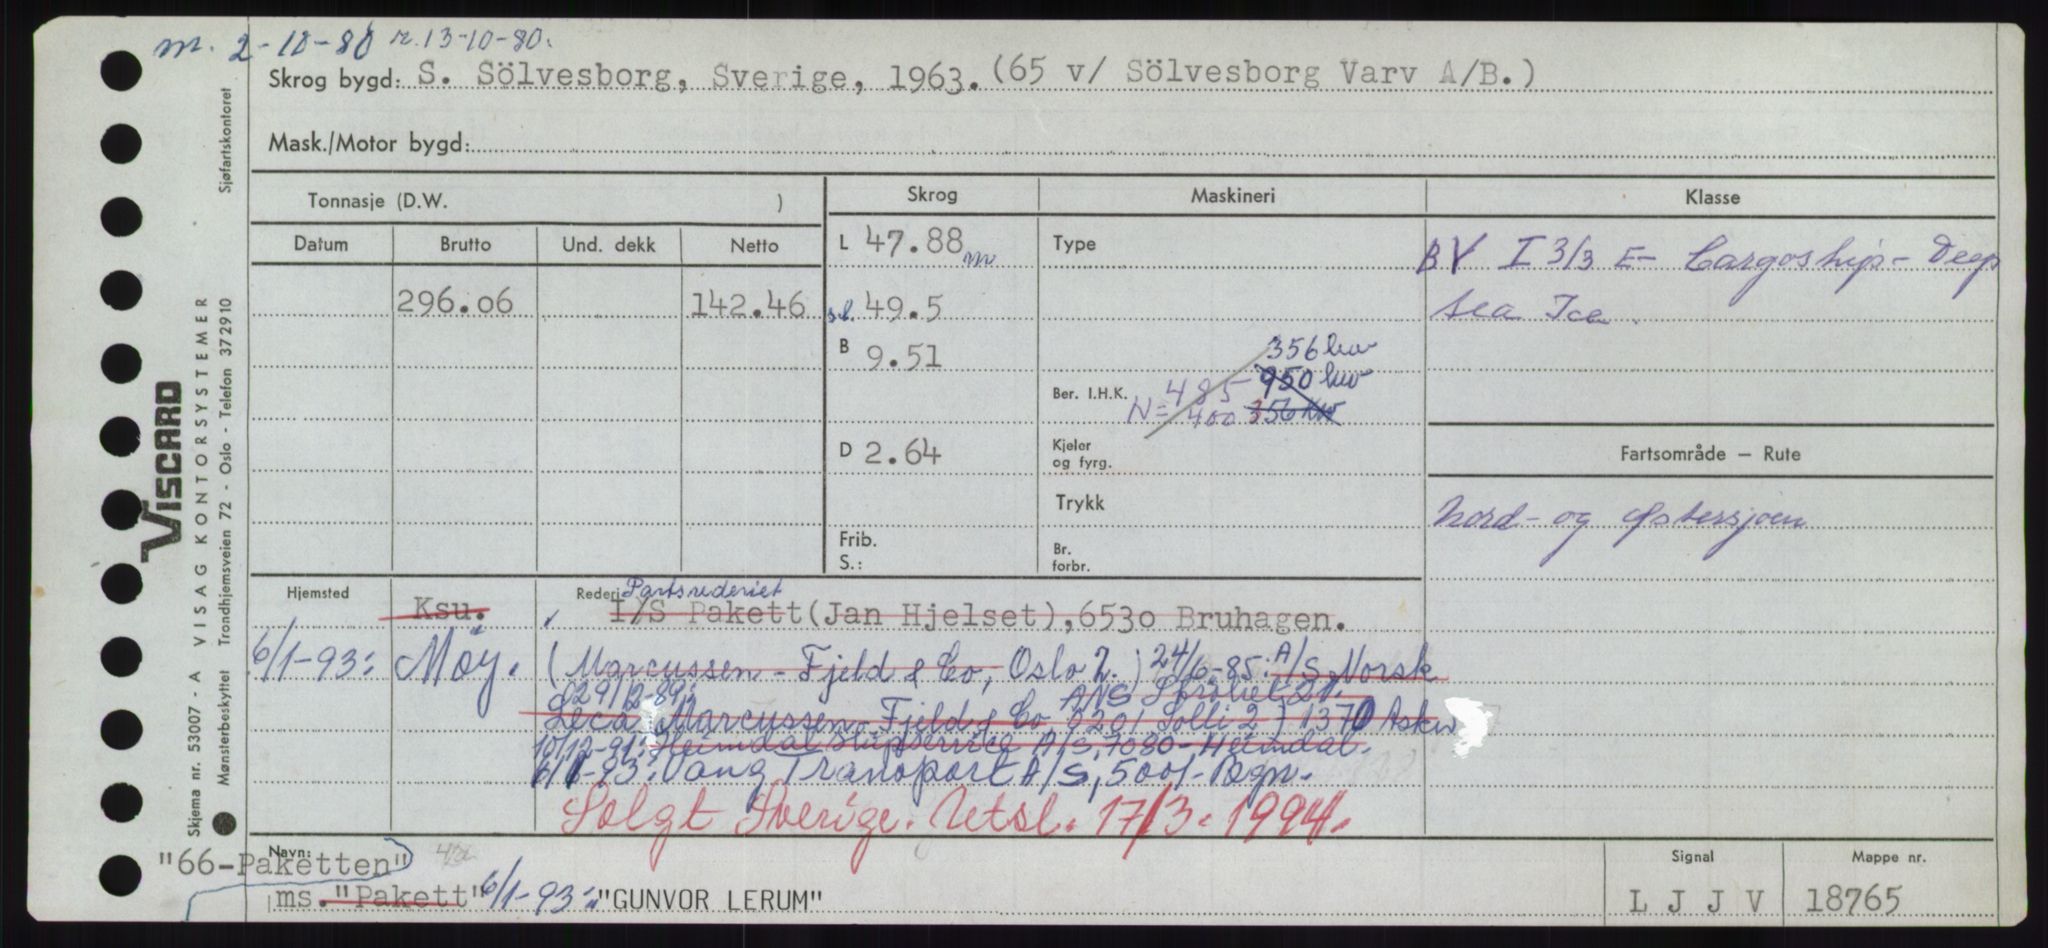 m. 2-10-80 r. 13-10-80.
Skrog bygd: S. Sölvesborg, Sverige, 1963. (65 v/ Sölvesborg Varv A/B.)
Mask./Motor bygd:
Tonnasje (D.W. ) Skrog Maskineri Klasse
Datum Brutto Und. dekk Netto L 47.88 m Type BV I 3/3 E- Cargoship- Deep
296.06 142.46 s.l. 49.5 sea Ice.
B 9.51 356 kw
950 kw
Ber. I.H.K. N= 485
400 356 KW
D 2.64 Kjeler
og fyrg. Fartsområde — Rute
Trykk Nord- og Østersjøen
Frib.
S.: Br.
forbr.
Hjemsted Ksu. Rederi Partsrederiet
I/S Pakett(Jan Hjelset),6530 Bruhagen.
6/1-93: Moy. (Marcussen- Fjeld & Co, Oslo 2.) 24/6-85: A/S Norsk
29/12-89: ANS
Leca Marcussen- Fjeld & Co 0201 Solli 2) 1370 Asker
10/12-91: Heimdal Slipservice A/S, 7080- Heimdal.
6/1-93: Vang Transport A/S, 5001- Bgn.
Solgt Sverige. Utsl. 17/3-1994.
Navn: Signal Mappe nr.
"66-Paketten"
ms. "Pakett" 6/1-93: "GUNVOR LERUM" L J J V 18765
VISCARD
VISAG KONTORSYSTEMER
Skjema nr. 53007 - A
Mønsterbeskyttet Trondhjemsveien 72 - Oslo - Telefon 372910
Sjøfartskontoret